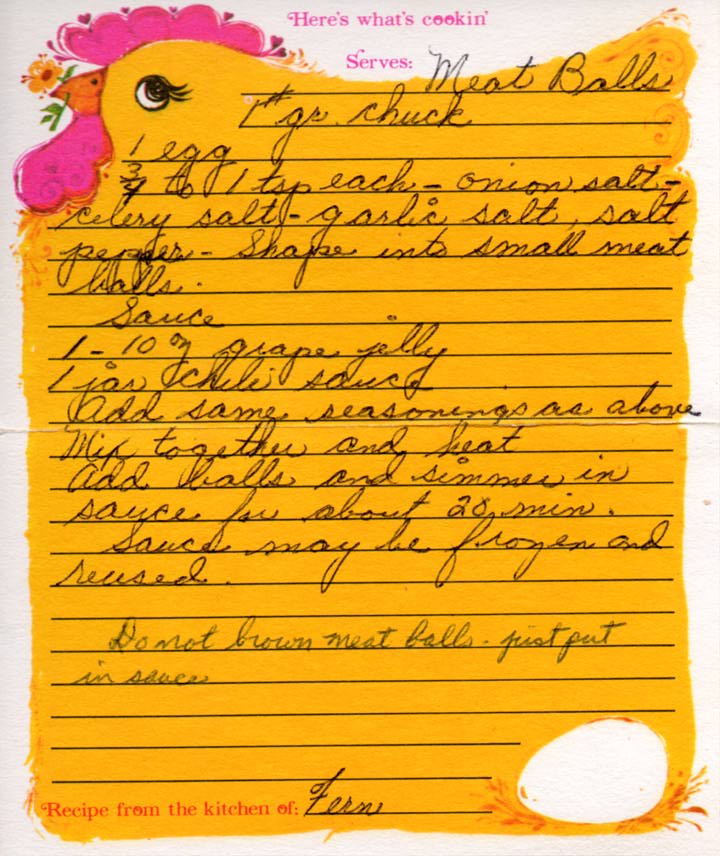 Here's what's cookin'
Serves: Meat Balls
1# gr. chuck
1 egg
3/4 to 1 tsp each - onion salt -
celery salt - garlic salt, salt
pepper - Shape into small meat
balls.
Sauce
1 - 10 oz grape jelly
1 jar chili sauce
Add same seasonings as above
Mix together and heat
Add balls and simmer in
sauce for about 20 min.
Sauce may be frozen and
reused.
Do not brown meat balls - just put
in sauce
Recipe from the kitchen of: Fern